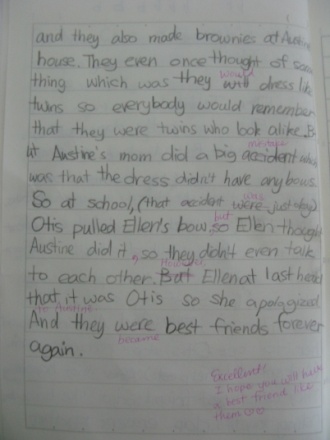 and they also made brownies at Austine
house. They even once thought of some
thing which was they will dress like
would
twins so everybody would remember
that they were twins who look alike. B
ut Austine's mom did a big accident which
mistake
was that the dress didn't have any bows.
So at school, (that accident were just days)
was
Otis pulled Ellen's bow, so Ellen thought
but
Austine did it, so they didn't even talk
to each other. But Ellen at last heard
However
that it was Otis so she apologized
to Austine.
And they were best friends forever
became
again.
Excellent!
I hope you will have
a best friend like
them